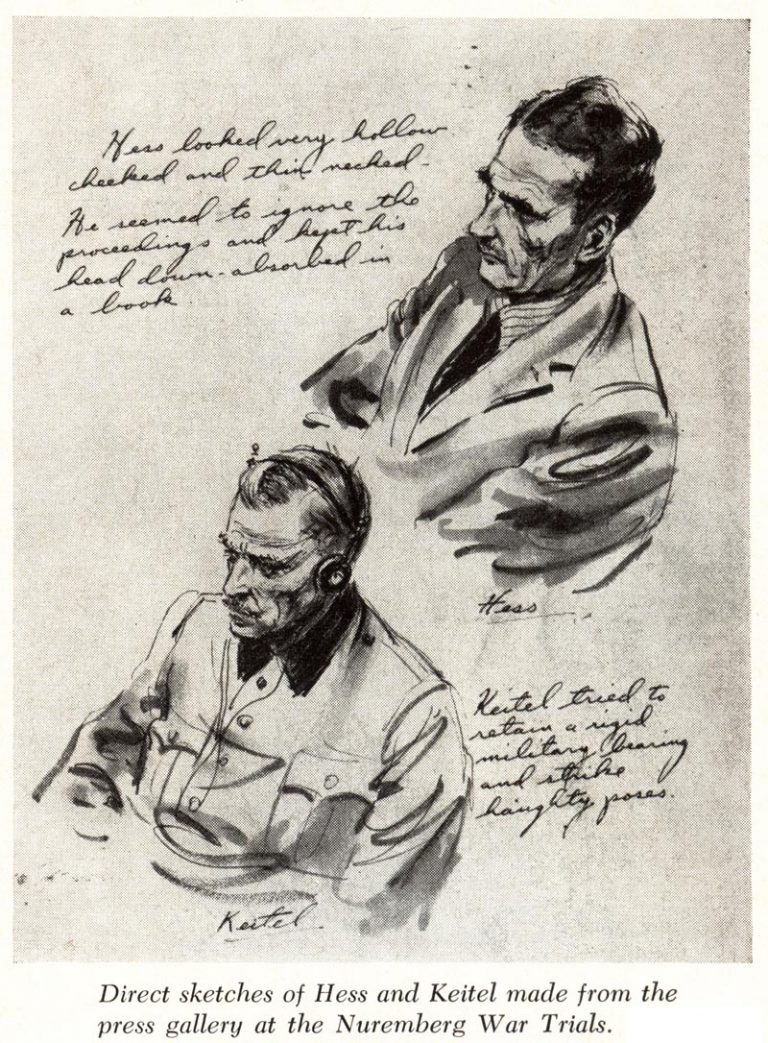 Hess looked very hollow
cheeked and thin necked.
He seemed to ignore the
proceedings and kept his
head down-absorbed in
a book.
Hess
Keitel tried to
retain a rigid
military bearing
and strike
haughty poses.
Keitel
Direct sketches of Hess and Keitel made from the
press gallery at the Nuremberg War Trials.